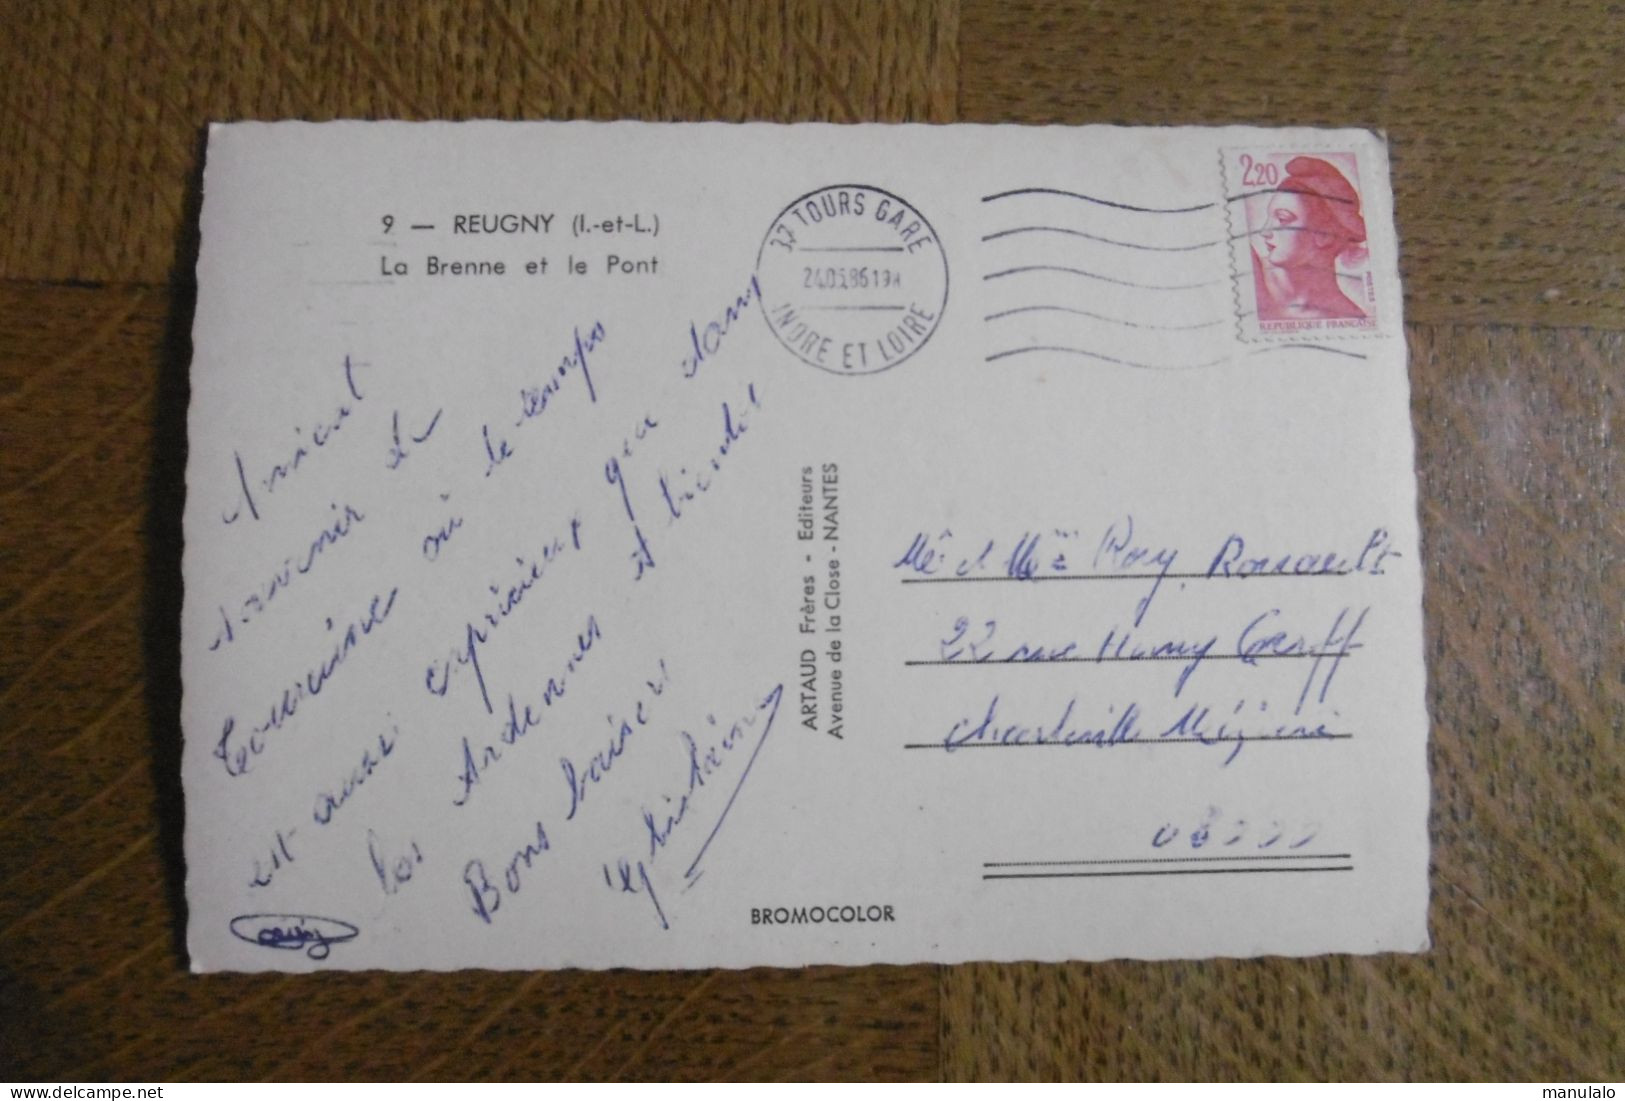 9 — REUGNY (I.-et-L.)
La Brenne et le Pont
37 TOURS GARE
24.05.86 19H
INDRE ET LOIRE
2,20
POSTES
REPUBLIQUE FRANÇAISE
Amical
souvenir de
Touraine où le temps
est aussi capricieux que dans
les Ardennes et bientôt
Bons baisers
ARTAUD Frères - Editeurs
Avenue de la Close - NANTES
Mr et Mme
22 rue
Charleville Mézières
08000
BROMOCOLOR
manulalo